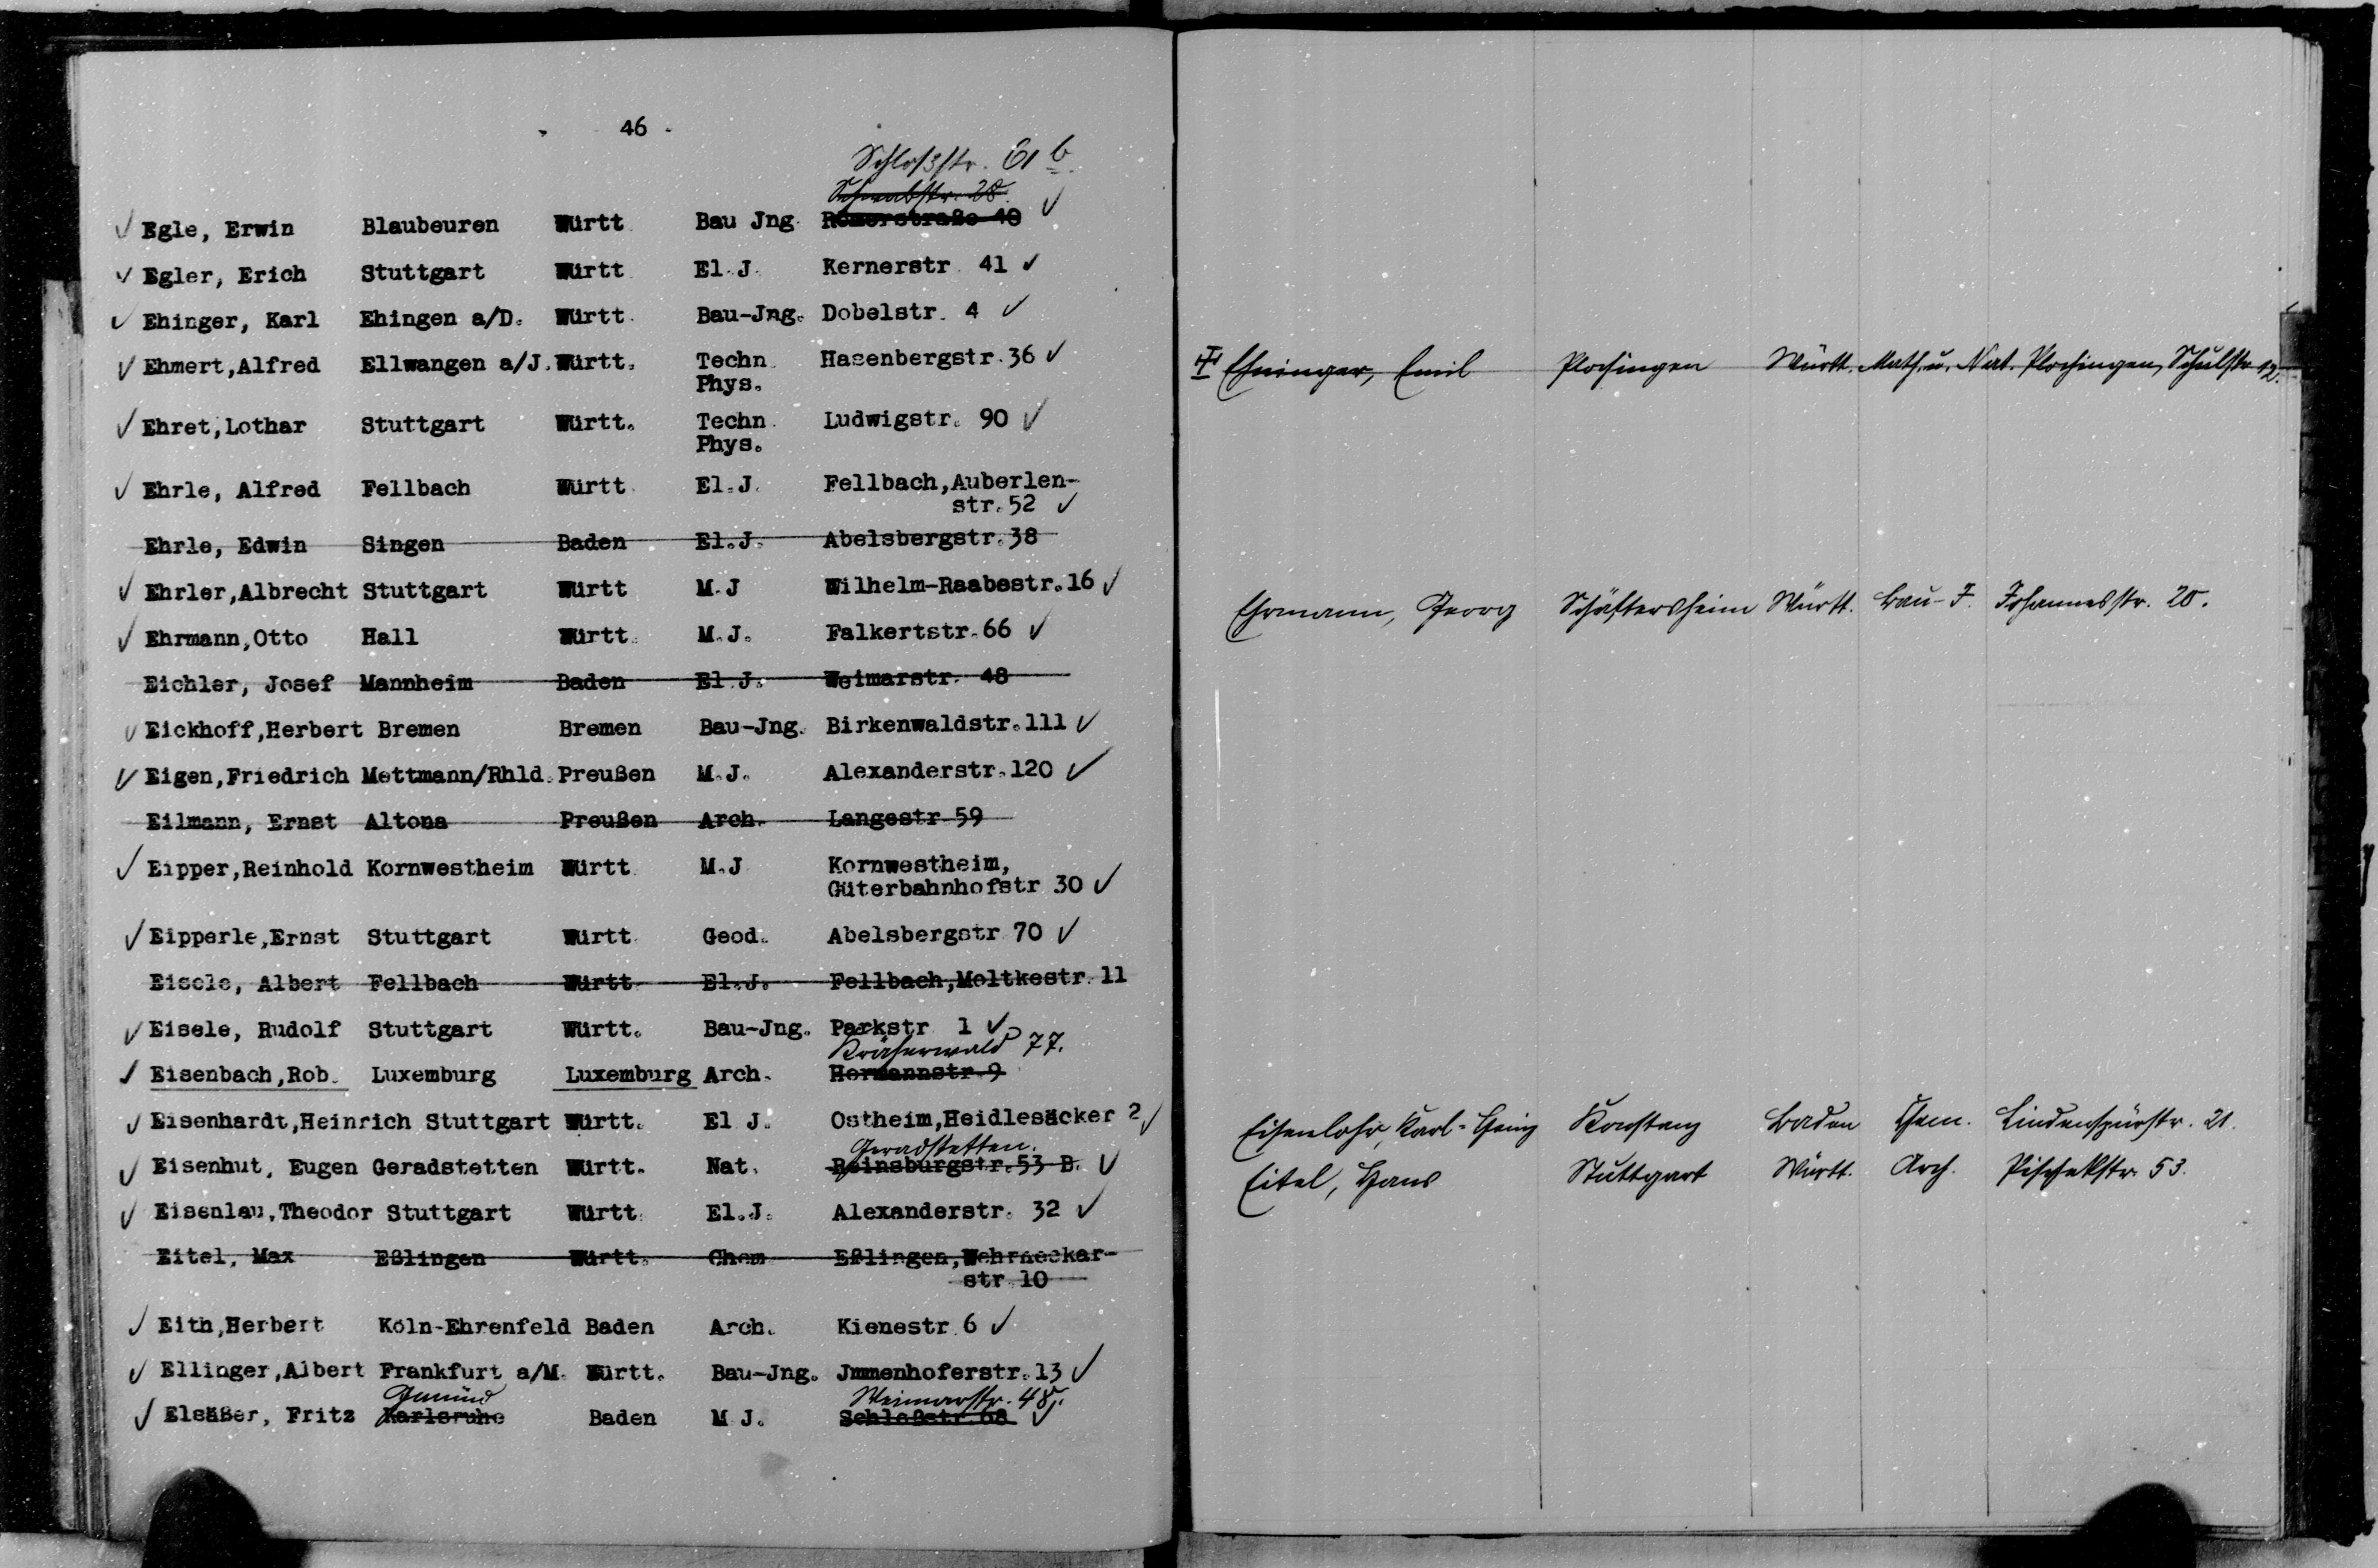 46
Schloßstr. 61 b
Schwabstr. 28.
Egle, Erwin Blaubeuren Württ Bau Jng. Römerstraße 40
Egler, Erich Stuttgart Württ El.J. Kernerstr. 41
Ehinger, Karl Ehingen a/D. Württ. Bau-Jng. Dobelstr. 4
Ehmert,Alfred Ellwangen a/J. Württ. Techn. Hasenbergstr.36
Phys.
Ehret,Lothar Stuttgart Württ. Techn. Ludwigstr. 90
Phys.
Ehrle, Alfred Fellbach Württ. El.J. Fellbach,Auberlen-
str.52
Ehrle, Edwin Singen Baden El.J. Abelsbergstr.38
Ehrler,Albrecht Stuttgart Württ M.J Wilhelm-Raabestr.16
Ehrmann,Otto Hall Württ. M.J. Falkertstr.66
Eichler, Josef Mannheim Baden El.J. Weimarstr. 48
Eickhoff,Herbert Bremen Bremen Bau-Jng. Birkenwaldstr.111
Eigen,Friedrich Mettmann/Rhld. Preußen M.J. Alexanderstr.120
Eilmann, Ernst Altona Preußen Arch. Langestr 59
Eipper,Reinhold Kornwestheim Württ M.J Kornwestheim,
Güterbahnhofstr 30
Eipperle,Ernst Stuttgart Württ. Geod. Abelsbergstr 70
Eisele, Albert Fellbach Württ El.J. Fellbach,Moltkestr.11
Eisele, Rudolf Stuttgart Württ. Bau-Jng. Parkstr 1
Kräherwald 77.
Eisenbach,Rob. Luxemburg Luxemburg Arch. Hermannstr.9
Eisenhardt,Heinrich Stuttgart Württ. El J. Ostheim,Heidlesäcker 2
Geradstetten.
Eisenhut, Eugen Geradstetten Württ. Nat. Reinsburgstr.53 B.
Eisenlau,Theodor Stuttgart Württ. El.J. Alexanderstr. 32
Eitel, Max Eßlingen Württ. Chem Eßlingen,Wehrneckar-
str.10
Eith,Herbert Köln-Ehrenfeld Baden Arch. Kienestr.6
Ellinger,Albert Frankfurt a/M. Württ. Bau-Jng. Jmmenhoferstr.13
Gmünd Weimarstr. 48.
Elsäßer, Fritz Karlsruhe Baden M J. Schloßstr.68
Ehninger, Emil Plochingen Württ. Math. u. Nat. Plochingen, Schulstr 12.
Ehrmann, Georg Schäftersheim Württ. Bau-J. Johannesstr. 20.
Eisenlohr, Karl-Heinz Konstanz Baden Chem. Lindenspürstr. 21.
Eitel, Hans Stuttgart Württ. Arch. Pischekstr. 53.